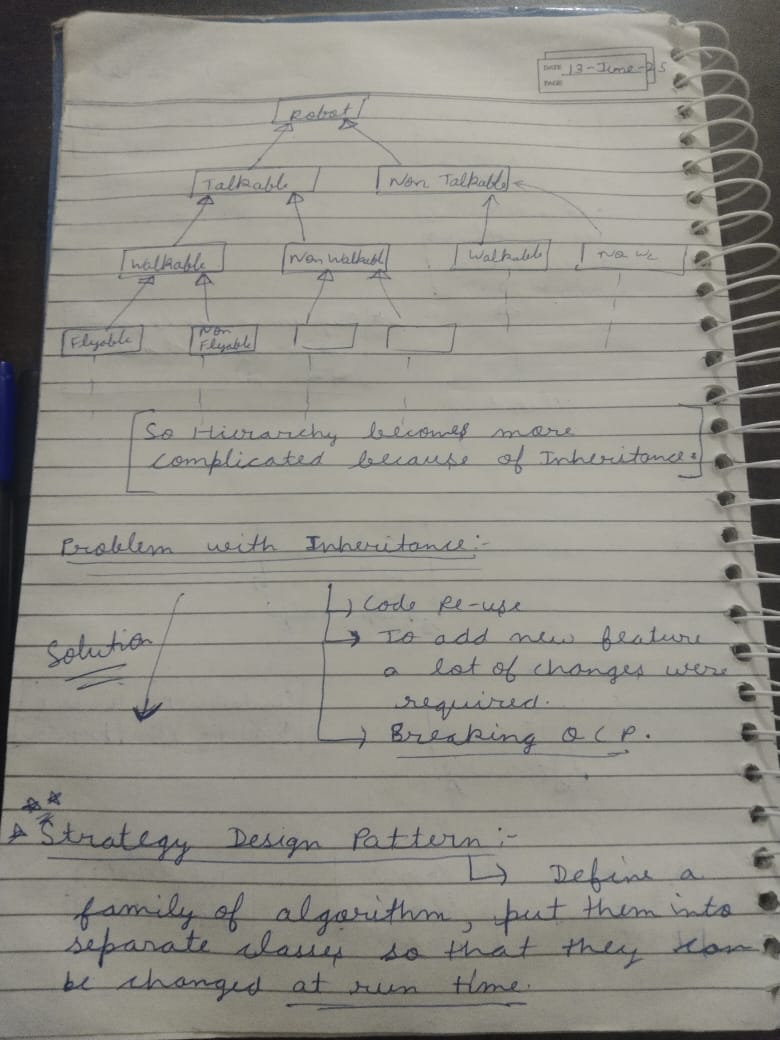 DATE 13-June-25
PAGE
Robot
Talkable
Non Talkable
Walkable
Non Walkable
Walkable
Flyable
Non
Flyable
So Hierarchy becomes more
complicated because of Inheritance.
Problem with Inheritance:-
Code Re-use
Solution
To add new feature
a lot of changes were
required.
Breaking OCP.
Strategy Design Pattern:-
Define a
family of algorithm, put them into
separate classes so that they can
be changed at run time.